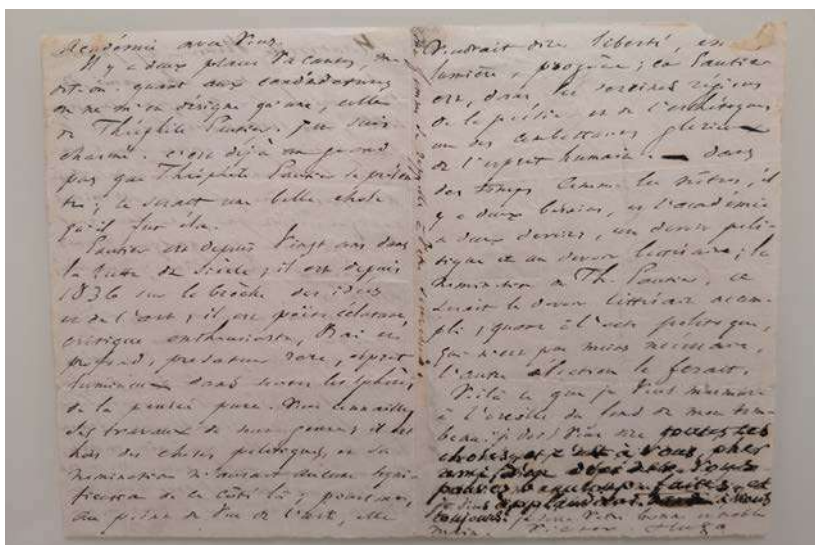 Académie avec vous.
Il y a deux places vacantes, me
dit-on. quant aux candidatures
on ne m'en désigne qu'une, celle
de Théophile Gautier. j'en suis
charmé. c'est déjà un grand
pas que Théophile Gautier se présen-
te; ce serait une belle chose
qu'il fût élu.
Gautier est depuis vingt ans dans
la lutte du siècle; il est depuis
1836 sur la brèche des idées
et de l'art; il est poëte éclatant,
critique enthousiaste, vrai et
profond, prosateur rare, esprit
lumineux dans toutes les sphères
de la pensée pure. Vous connaissez
les travaux de tout genre; il est
hors des choses politiques, et sa
nomination n'aurait aucune signi-
fication de ce côté là; pourtant,
au point de vue de l'art, elle
voudrait dire liberté, et
lumière, progrès; car Gautier
est, dans les sereines régions
de la poésie et de l'esthétique
un des combattants glorieux
de l'esprit humain. — dans
des temps comme les nôtres, il
y a deux besoins, et l'académie
a deux devoirs, un devoir poli-
tique et un devoir littéraire; la
nomination de Th. Gautier, ce
serait le devoir littéraire accom-
pli; quant à l'acte politique,
qui n'est pas moins nécessaire,
l'autre élection le ferait.
Voilà ce que je vous murmure
à l'oreille du fond de mon tom-
beau; je dois vous dire toutes ces
choses, et c'est à vous, cher
ami, d'en décider. Vous
pouvez beaucoup. faites, et
je vous applaudirai. à vous
toujours. je serre votre bonne et noble
main. Victor Hugo